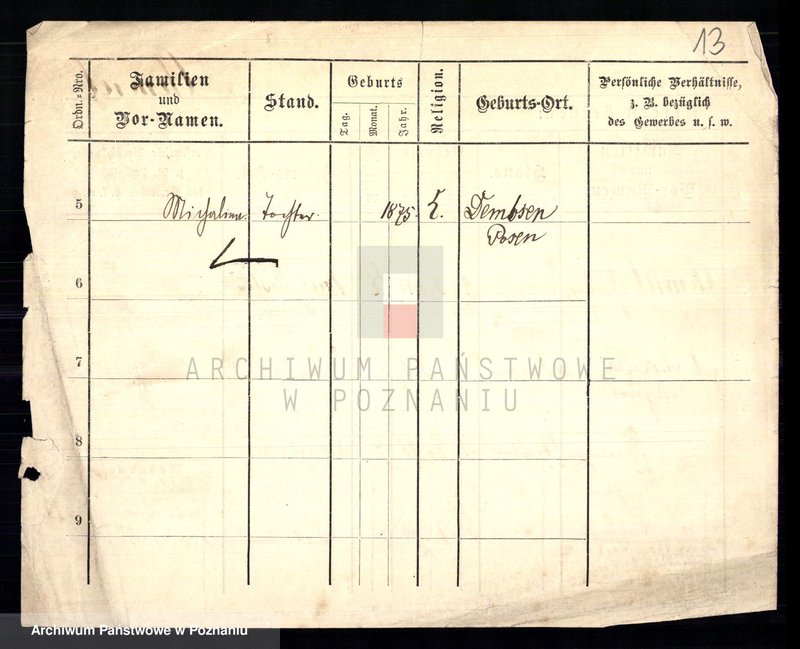 13
Ordn.-Nro.
Familien
und
Vor-Namen.
Stand.
Geburts
Tag.
Monat.
Jahr.
Religion.
Geburts-Ort.
Persönliche Verhältnisse,
z. B. bezüglich
des Gewerbes u. s. w.
5 Michalina. Tochter. 1875. k. Dembsen
Posen
6
7
8
9
ARCHIWUM PAŃSTWOWE
W POZNANIU
Archiwum Państwowe w Poznaniu